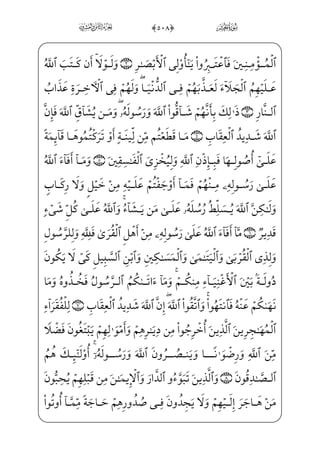 ﴿٥٠٨﴾
ٱلْمُؤْمِنِينَ فَٱعْتَبِرُواْ يَٰٓأُوْلِى ٱلْأَبْصَٰرِ ۝ وَلَوْلَآ أَن كَتَبَ ٱللَّهُ
عَلَيْهِمُ ٱلْجَلَآءَ لَعَذَّبَهُمْ فِى ٱلدُّنْيَا ۖ وَلَهُمْ فِى ٱلْأَخِرَةِ عَذَابُ
ٱلنَّارِ ۝ ذَٰلِكَ بِأَنَّهُمْ شَآقُّواْ ٱللَّهَ وَرَسُولَهُۥ ۖ وَمَن يُشَآقِّ ٱللَّهَ فَإِنَّ
ٱللَّهَ شَدِيدُ ٱلْعِقَابِ ۝ مَا قَطَعْتُم مِّن لِّينَةٍ أَوْ تَرَكْتُمُوهَا قَآئِمَةً
عَلَىٰٓ أُصُولِهَا فَبِإِذْنِ ٱللَّهِ وَلِيُخْزِىَ ٱلْفَٰسِقِينَ ۝ وَمَآ أَفَآءَ ٱللَّهُ
عَلَىٰ رَسُولِهِۦ مِنْهُمْ فَمَآ أَوْجَفْتُمْ عَلَيْهِ مِنْ خَيْلٍ وَلَا رِكَابٍ
وَلَٰكِنَّ ٱللَّهَ يُسَلِّطُ رُسُلَهُۥ عَلَىٰ مَن يَشَآءُ ۚ وَٱللَّهُ عَلَىٰ كُلِّ شَىْءٍ
قَدِيرٌ ۝ مَّآ أَفَآءَ ٱللَّهُ عَلَىٰ رَسُولِهِۦ مِنْ أَهْلِ ٱلْقُرَىٰ فَلِلَّهِ وَلِلرَّسُولِ
وَلِذِى ٱلْقُرْبَىٰ وَٱلْيَتَٰمَىٰ وَٱلْمَسَٰكِينِ وَٱبْنِ ٱلسَّبِيلِ كَىْ لَا يَكُونَ
دُولَةًۢ بَيْنَ ٱلْأَغْنِيَآءِ مِنكُمْ ۚ وَمَآ ءَاتَىٰكُمُ ٱلرَّسُولُ فَخُذُوهُ وَمَا
نَهَىٰكُمْ عَنْهُ فَٱنتَهُواْ ۚ وَٱتَّقُواْ ٱللَّهَ ۖ إِنَّ ٱللَّهَ شَدِيدُ ٱلْعِقَابِ ۝ لِلْفُقَرَآءِ
ٱلْمُهَٰجِرِينَ ٱلَّذِينَ أُخْرِجُواْ مِن دِيَٰرِهِمْ وَأَمْوَٰلِهِمْ يَبْتَغُونَ فَضْلًا
مِّنَ ٱللَّهِ وَرِضْوَٰنًا وَيَنصُرُونَ ٱللَّهَ وَرَسُولَهُۥٓ ۚ أُوْلَٰٓئِكَ هُمُ
ٱلصَّٰدِقُونَ ۝ وَٱلَّذِينَ تَبَوَّءُو ٱلدَّارَ وَٱلْإِيمَٰنَ مِن قَبْلِهِمْ يُحِبُّونَ
مَنْ هَاجَرَ إِلَيْهِمْ وَلَا يَجِدُونَ فِى صُدُورِهِمْ حَاجَةً مِّمَّآ أُوتُواْ